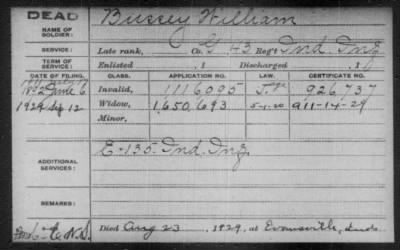 DEAD
NAME OF SOLDIER:
Bussey William
SERVICE:
Late rank, Co. G 43 Reg't Ind. Inf
TERM OF SERVICE:
Enlisted , 1 Discharged , 1
DATE OF FILING. CLASS. APPLICATION NO. LAW. CERTIFICATE NO.
1892 June 6 Invalid, 1116095 926737
1929 Sep 12 Widow, 1,650,693 5-1-20 a 11-14-29
Minor,
ADDITIONAL SERVICES:
E-135-Ind. Inf.
REMARKS:
C.N.S.
Died Aug 23, 1929, at Evansville, Ind.